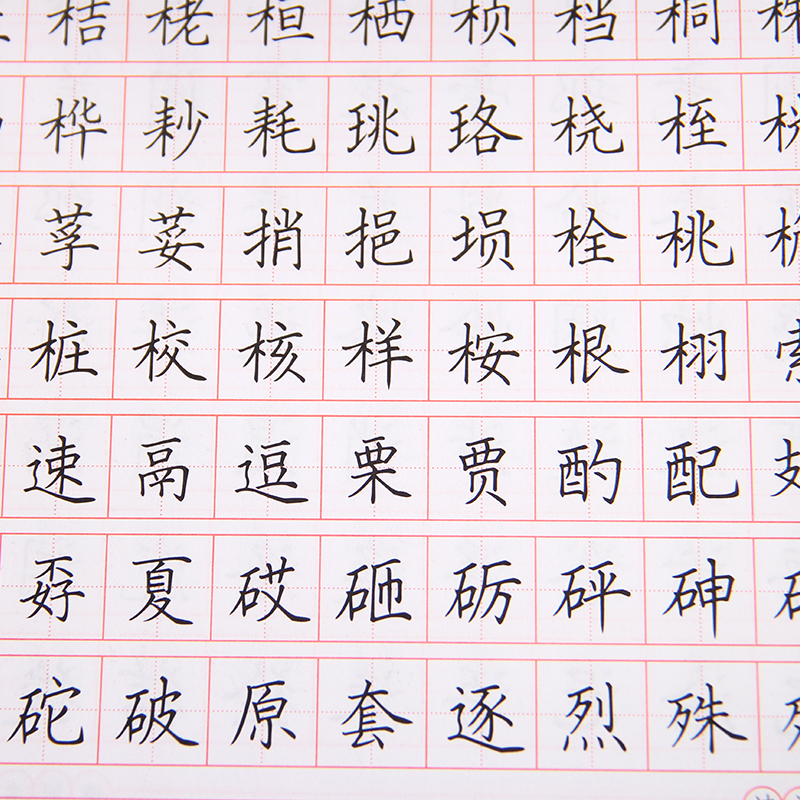 桔栳桓栖桢档桐株
桦耖耗珧珞桡桎桄
莩荽捎挹埙栓桃
桩校核样桉根栩索
速鬲逗栗贾酌配
孬夏砹砸砺砰砷
砣破原套逐烈殊